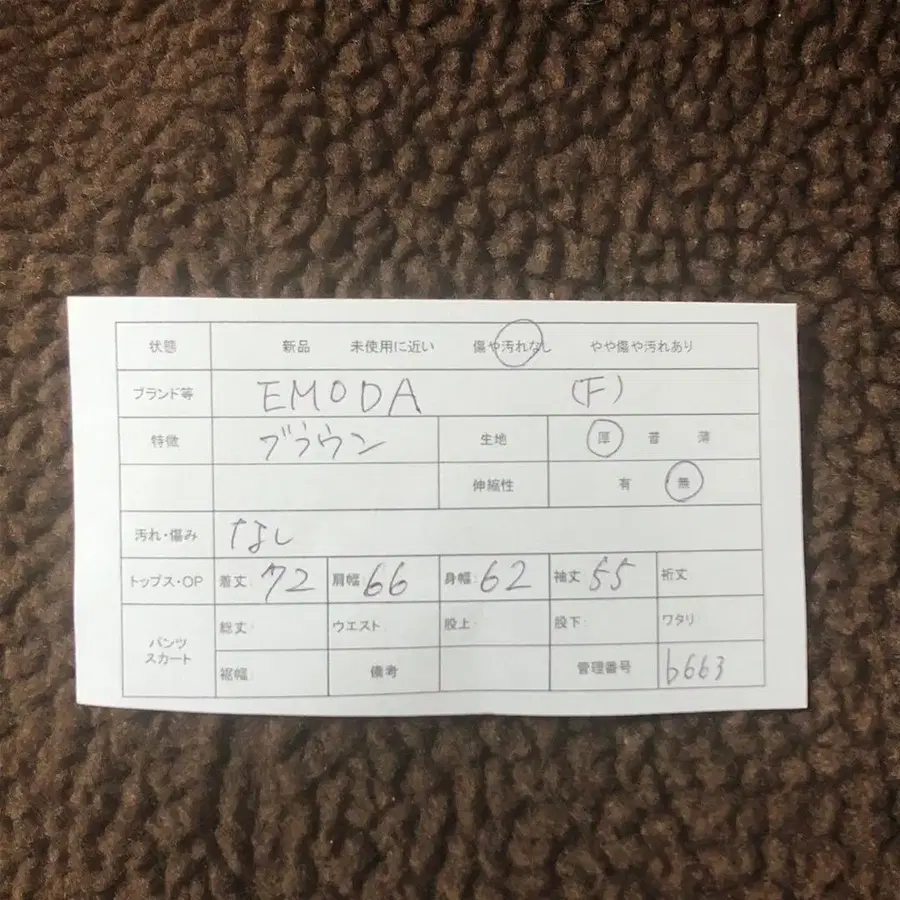 状態 新品 未使用に近い 傷や汚れなし やや傷や汚れあり
ブランド等 EMODA (F)
特徴 ブラウン 生地 厚 普 薄
伸縮性 有 無
汚れ・傷み なし
トップス・OP 着丈: 72 肩幅: 66 身幅: 62 袖丈: 55 裄丈
パンツ スカート 総丈: ウエスト: 股上: 股下: ワタリ:
裾幅: 備考 管理番号 b663